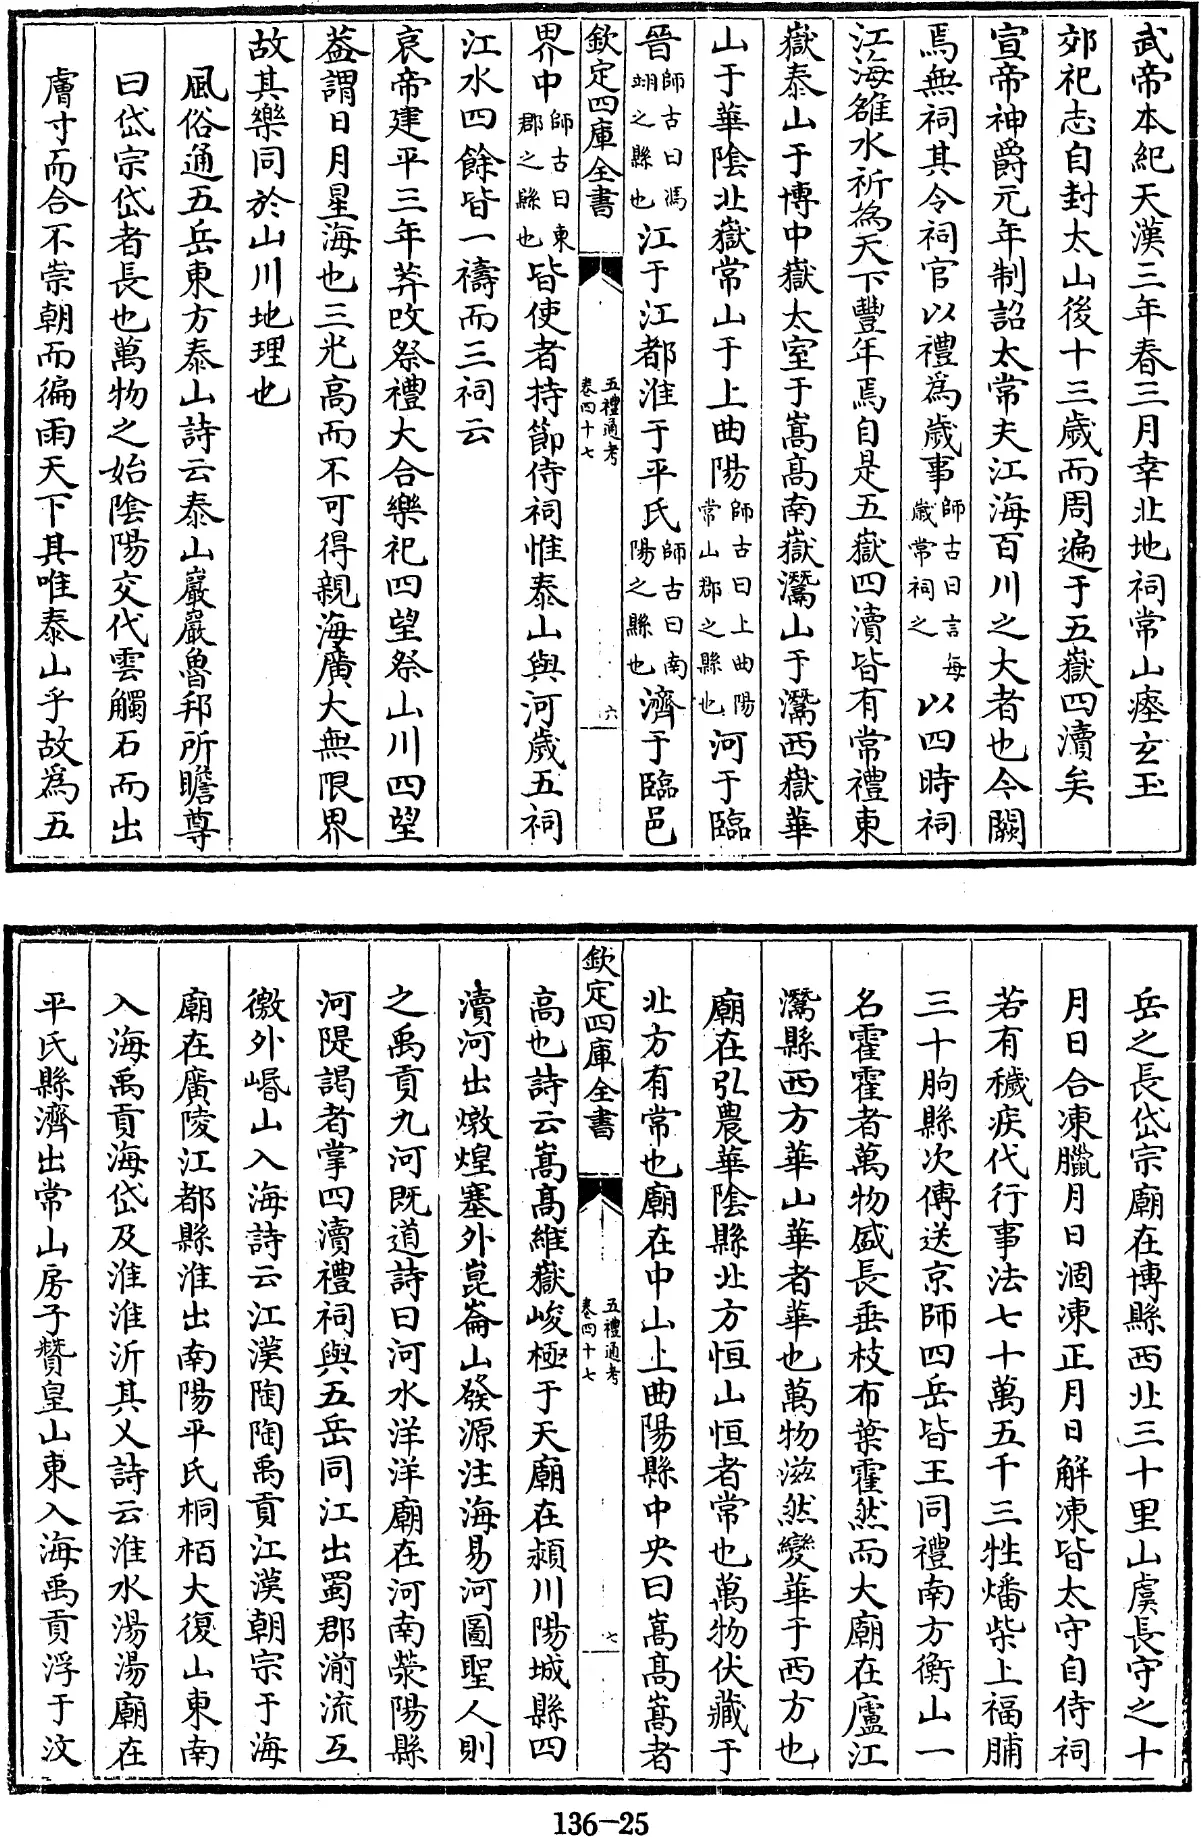 武帝本紀天漢三年春三月幸北地祠常山瘞玄玉
郊祀志自封太山後十三歲而周遍于五嶽四瀆矣
宣帝神爵元年制詔太常夫江海百川之大者也今闕
焉無祠其令祠官以禮為歲事師古曰言每歲常祠之以四時祠
江海雒水祈為天下豐年焉自是五嶽四瀆皆有常禮東
嶽泰山于博中嶽太室于嵩髙南嶽灊山于灊西嶽華
山于華陰北嶽常山于上曲陽師古曰上曲陽常山郡之縣也河于臨
晉師古曰馮翊之縣也江于江都淮于平氏師古曰南陽之縣也濟于臨邑
欽定四庫全書
五禮通考
卷四十七
六
界中師古曰東郡之縣也皆使者持節侍祠惟泰山與河歲五祠
江水四餘皆一禱而三祠云
哀帝建平三年莽改祭禮大合樂祀四望祭山川四望
蓋謂日月星海也三光高而不可得親海廣大無限界
故其樂同於山川地理也
風俗通五岳東方泰山詩云泰山巖巖魯邦所瞻尊
曰岱宗岱者長也萬物之始陰陽交代雲觸石而出
膚寸而合不崇朝而徧雨天下其唯泰山乎故為五
岳之長岱宗廟在博縣西北三十里山虞長守之十
月日合凍臘月日涸凍正月日解凍皆太守自侍祠
若有穢疾代行事法七十萬五千三牲燔柴上福脯
三十朐縣次傳送京師四岳皆王同禮南方衡山一
名霍霍者萬物盛長垂枝布葉霍然而大廟在廬江
灊縣西方華山華者華也萬物滋然變華于西方也
廟在弘農華陰縣北方恒山恒者常也萬物伏藏于
北方有常也廟在中山上曲陽縣中央曰嵩髙嵩者
欽定四庫全書
五禮通考
卷四十七
七
高也詩云嵩髙維嶽峻極于天廟在潁川陽城縣四
瀆河出燉煌塞外崑崙山發源注海易河圖聖人則
之禹貢九河既道詩曰河水洋洋廟在河南滎陽縣
河隄謁者掌四瀆禮祠與五岳同江出蜀郡湔流互
徼外㟭山入海詩云江漢陶陶禹貢江漢朝宗于海
廟在廣陵江都縣淮出南陽平氏桐栢大復山東南
入海禹貢海岱及淮淮沂其乂詩云淮水湯湯廟在
平氏縣濟出常山房子贊皇山東入海禹貢浮于汶
136-25